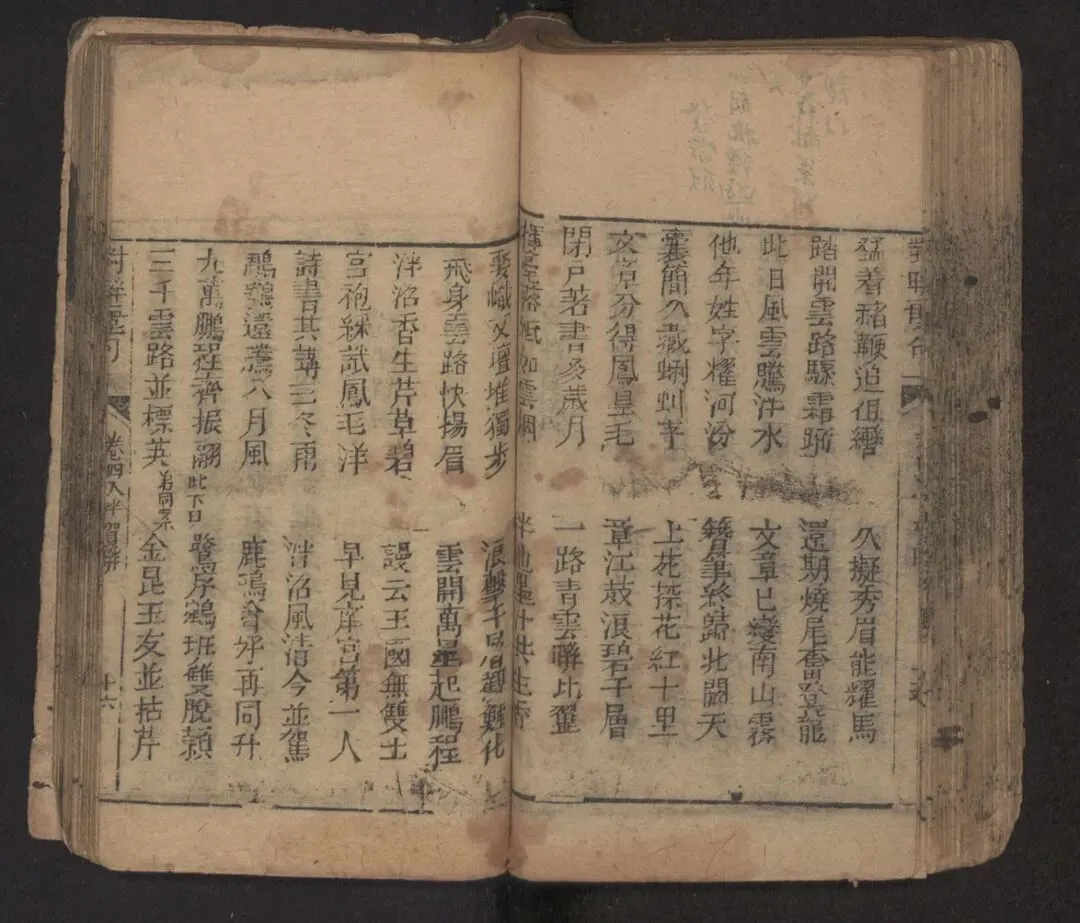 猛着鞭追
久擬秀眉能耀馬
踏開雲路驟霜蹄
還期燒尾奮登龍
此日風雲騰泮水
文章已變南山霧
他年姓字耀河汾
簪筆終歸北闕天
囊簡久藏蝌蚪字
上苑探花紅十里
文章分得鳳皇毛
章江鼓浪碧千層
閉戶著書多歲月
一路青雲聯比翼
揮毫落紙如雲烟
半池共生香
奪幟文壇推獨步
浪擊千層觀鯉化
飛身雲路快揚眉
雲開萬里起鵬程
泮沼香生芹草碧
謾云王國無雙士
宮袍綵試鳳毛洋
早見庠宮第一人
詩書共講三冬雨
泮沼風清今並駕
鶚遠薦八月風
鹿鳴宴好再同升
九萬鵬程齊振翮 此下
鷺序鵷班雙脫穎
三千雲路並標英 弟同案
金昆玉友並拈芹
卷四入泮賀聯
十六